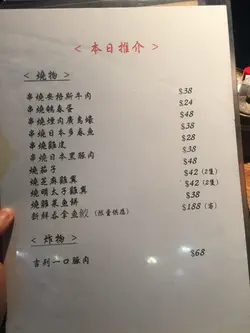 < 本日推介 >
< 燒物 >
串燒安格斯牛肉 $38
串燒鵪春蛋 $24
串燒煙肉廣島蠔 $48
串燒日本多春魚 $38
串燒雞皮 $28
串燒日本黑豚肉 $38
燒茄子 $48
燒芝麻雞翼 $42 (2隻)
燒明太子雞翼 $42 (2隻)
燒雜菜魚餅 $38
新鮮吞拿魚鮫 (限量供應) $188 (客)
< 炸物 >
吉列一口豚肉 $68